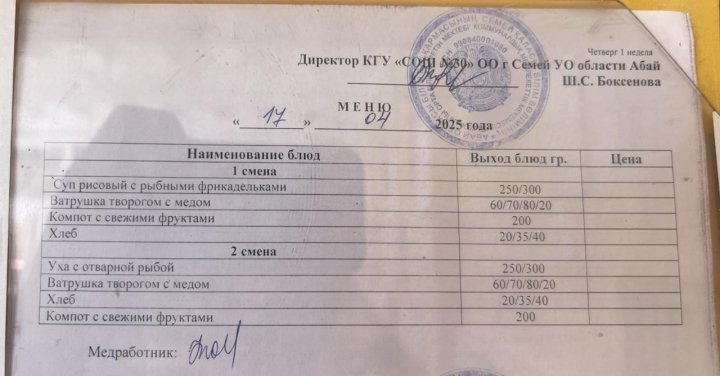 Четверг 1 неделя
Директор КГУ «СОШ №30» ОО г Семей УО области Абай
Ш.С. Боксенова
МЕНЮ
« 17 » 04 2025 года
Наименование блюд Выход блюд гр. Цена
1 смена
Суп рисовый с рыбными фрикадельками 250/300
Ватрушка творогом с медом 60/70/80/20
Компот с свежими фруктами 200
Хлеб 20/35/40
2 смена
Уха с отварной рыбой 250/300
Ватрушка творогом с медом 60/70/80/20
Хлеб 20/35/40
Компот с свежими фруктами 200
Медработник: